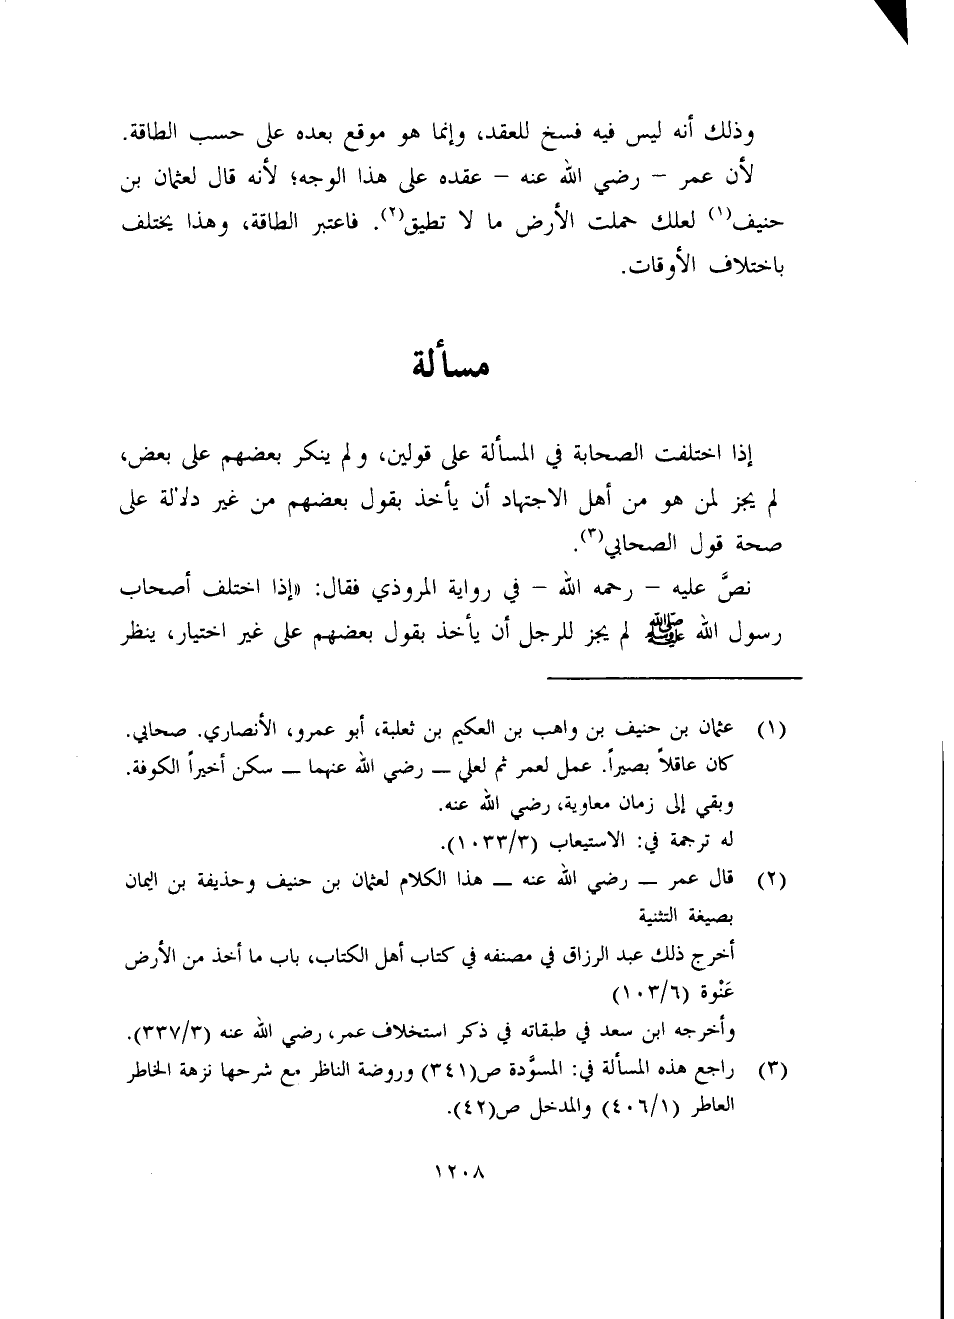 وذلك أنه ليس فيه فسخ للعقد، وإنما هو موقع بعده على حسب الطاقة.
لأن عمر – رضي الله عنه – عقده على هذا الوجه؛ لأنه قال لعثمان بن
حنيف(١) لعلك حملت الأرض ما لا تطيق(٢). فاعتبر الطاقة، وهذا يختلف
باختلاف الأوقات.
مسألة
إذا اختلفت الصحابة في المسألة على قولين، ولم ينكر بعضهم على بعض،
لم يجز لمن هو من أهل الاجتهاد أن يأخذ بقول بعضهم من غير دلالة على
صحة قول الصحابي(٣).
نصَّ عليه – رحمه الله – في رواية المروذي فقال: «إذا اختلف أصحاب
رسول الله ﷺ لم يجز للرجل أن يأخذ بقول بعضهم على غير اختيار، ينظر
(١) عثمان بن حنيف بن واهب بن العكيم بن ثعلبة، أبو عمرو، الأنصاري. صحابي.
كان عاقلاً بصيراً. عمل لعمر ثم لعلي – رضي الله عنهما – سكن أخيراً الكوفة.
وبقي إلى زمان معاوية، رضي الله عنه.
له ترجمة في: الاستيعاب (١٠٣٣/٣).
(٢) قال عمر – رضي الله عنه – هذا الكلام لعثمان بن حنيف وحذيفة بن اليمان
بصيغة التثنية
أخرج ذلك عبد الرزاق في مصنفه في كتاب أهل الكتاب، باب ما أخذ من الأرض
عَنْوة (١٠٣/٦)
وأخرجه ابن سعد في طبقاته في ذكر استخلاف عمر، رضي الله عنه (٣٣٧/٣).
(٣) راجع هذه المسألة في: المسوَّدة ص(٣٤١) وروضة الناظر مع شرحها نزهة الخاطر
العاطر (٤٠٦/١) والمدخل ص(٤٢).
١٢٠٨